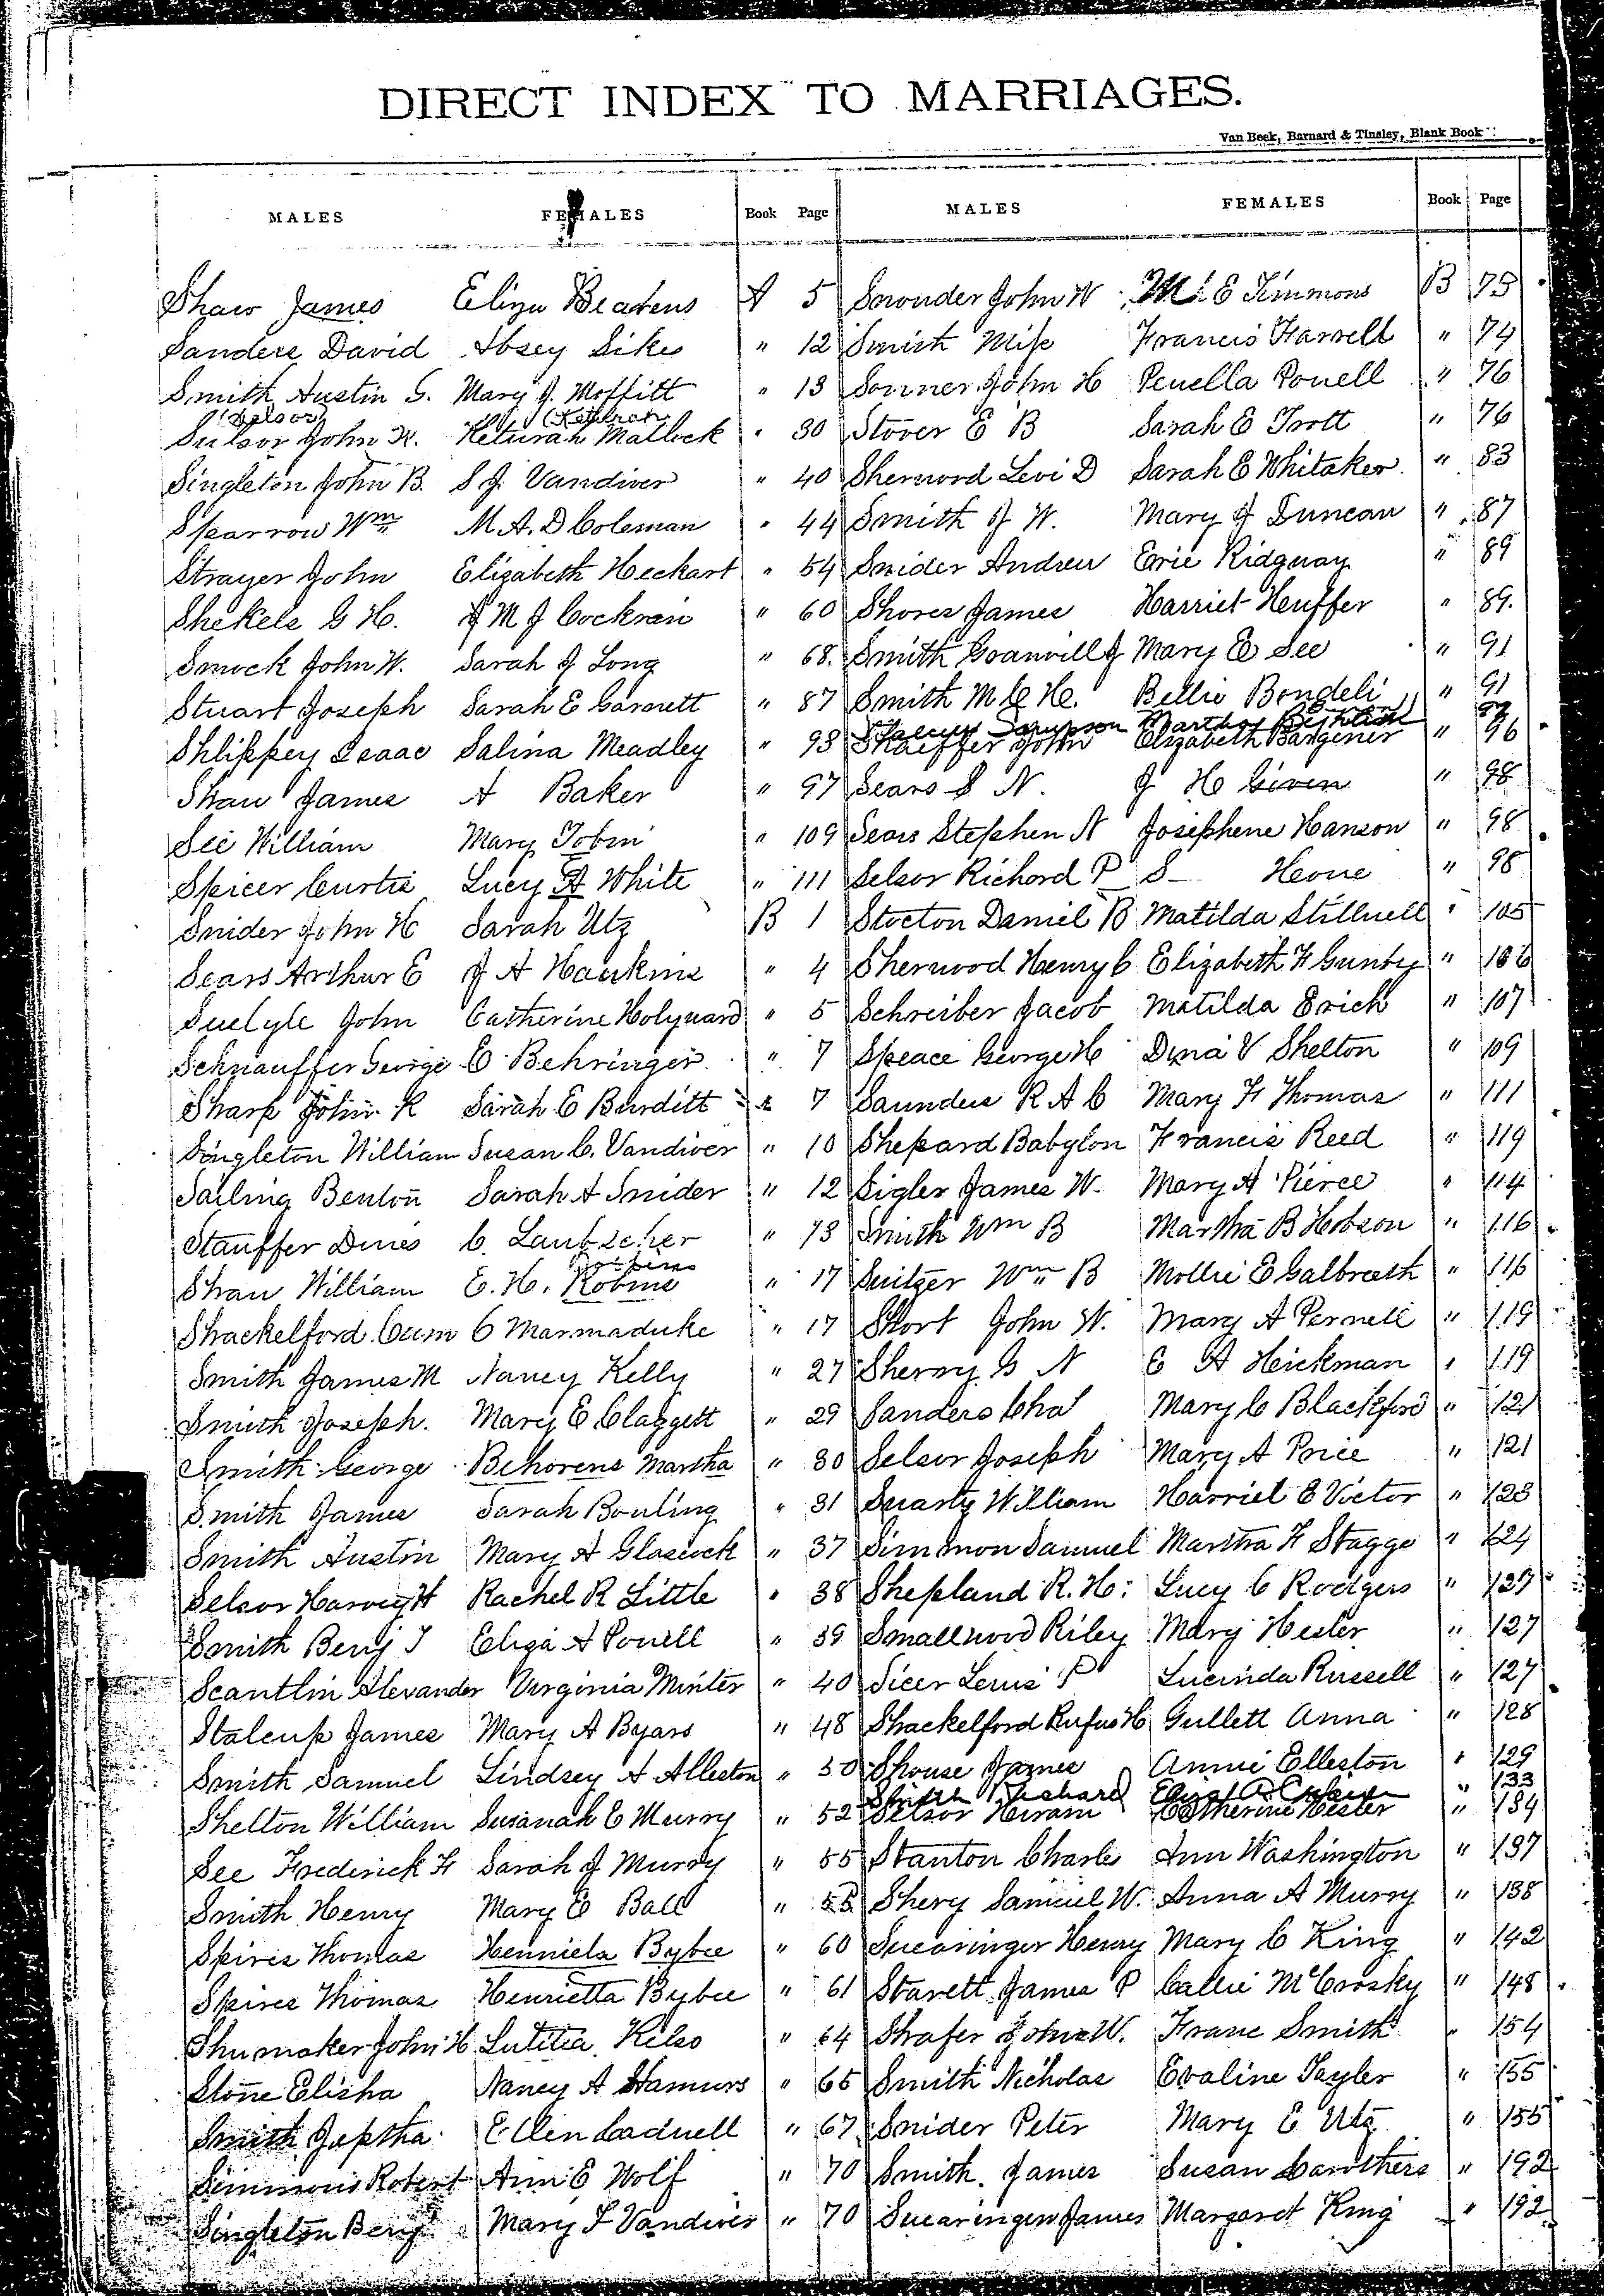 DIRECT INDEX TO MARRIAGES.
Van Beek, Barnard & Tinsley, Blank Book
MALES FEMALES Book Page MALES FEMALES Book Page
Shaw James Eliza Beavens A 5
Sanders David Absey Sikes " 12
Smith Austin G. Mary J. Moffitt " 13
(Selsor) (Katurah
Sulsor John H. Keturah Mallock " 30
Singleton John B. S J Vandiver " 40
Sparrow Wm M A. D Coleman " 44
Strayer John Elizabeth Heckart " 54
Shekels G H. M J Cockren " 60
Smock John W. Sarah J Long " 68.
Stuart Joseph Sarah E Garnett " 87
Shlippey Isaac Salina Meadley " 93
Shaw James A Baker " 97
See William Mary Tobin " 109
Spicer Curtis Lucy A White " 111
Snider John H Sarah Utz B 1
Sears Arthur E J A Hawkins " 4
Suelyle John Catherine Holyward " 5
Schnauffer George C Behringer " 7
Sharp John R Sarah E Burditt " 7
Singleton William Susan C. Vandiver " 10
Sailing Benton Sarah A Snider " 12
Stauffer Dines C. Laubscher " 13
Shaw William E. H. Robins " 17
Shackelford Cum C Marmaduke " 17
Smith James M Nancy Kelly " 27
Smith Joseph. Mary E. Claggett " 29
Smith George Behorens Martha " 30
Smith James Sarah Bowling " 31
Smith Austin Mary A Glascock " 37
Selsor Harvey H Rachel R Little " 38
Smith Benj T Eliza A Powell " 39
Scantlin Alexander Virginia Minter " 40
Stalcup James Mary A Byars " 48
Smith Samuel Lindsey A Alleston " 50
Shelton William Susanah E Murry " 52
See Frederick F Sarah J Murry " 55
Smith Henry Mary E Ball "
Spires Thomas Henniela Bybee " 60
Spires Thomas Henrietta Bybee " 61
Shumaker John H Lutitia Kelso " 64
Stone Elisha Nancy A Hamurs " 65
Smith Jeptha Ellen Cadwell " 67
Simmons Robert Ann E Wolf " 70
Singleton Benj Mary F Vandiver " 70
Snowder John W M E Timmons B 73
Smith Mife Francis Harrell " 74
Sonner John H Penella Powell " 76
Stover E B Sarah E Trott " 76
Sherwood Levi D Sarah E Whitaker " 83
Smith J W. Mary J Duncan " 87
Snider Andrew Evie Ridgway " 89
Shores James Harriet Heuffer " 89.
Smith Granvill J Mary E See " 91
Smith M C H. Bellie Bondeli " 91
Stacup Sampson Martha
Shaeffer John Elizabeth Bargener " 96
Sears S N. J H Given " 98
Sears Stephen N Josephene Hanson " 98
Selsor Richard P S Heone " 98
Stocton Daniel B Matilda Stillwell " 105
Sherwood Henry C Elizabeth F Gunby " 106
Schreiber Jacob Matilda Erich " 107
Speace George H Dyna V Shelton " 109
Saunders R A C Mary F Thomas " 111
Shepard Babylon Francis Reed " 119
Sigler James W. Mary A Pierce " 114
Smith Wm B Martha B Hobson " 116
Switzer Wm B Mollie E Galbreath " 116
Short John W. Mary A Pernell " 119
Sherry G N E A Hickman " 119
Sanders Cha Mary C Blackford " 121
Selsor Joseph Mary A Price " 121
Swarty William Harriet E Victor " 123
Simmon Samuel Martha F Staggs " 124
Shepland R. H. Lucy C Rodgers " 127
Smallwood Riley Mary Hesler " 127
Sicer Lewis P Lucinda Russell " 127
Shackelford Rufus H Gullett Anna " 128
Shouse James Annie Elleston " 129
Smith Richard Eliza A " 133
Selsor Hiram Catherine Hesler " 134
Stanton Charles Ann Washington " 137
Shery Samuel W. Anna A Murry " 138
Swearinger Henry Mary C King " 142
Starett James P Callie McCrosky " 148
Shafer John W. Franc Smith " 154
Smith Nicholas Evaline Tayler " 155
Snider Peter Mary E Utz " 155
Smith James Susan Carothers " 192
Swearingen James Margaret King " 192